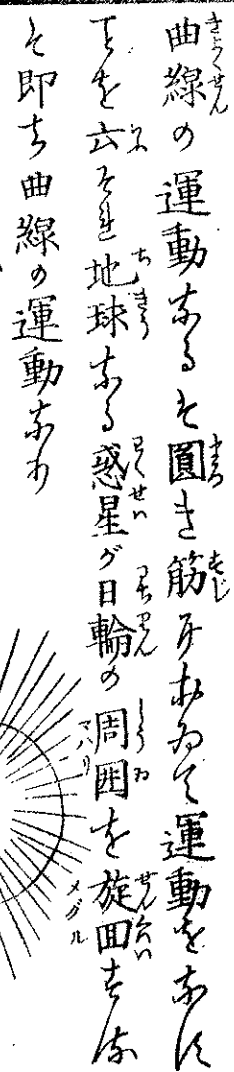 曲線の運動なるは圓き筋に於ゐて運動をなす
ことを云ふそれ地球なる惑星が日輪の周囲を旋回する
は即ち曲線の運動なり